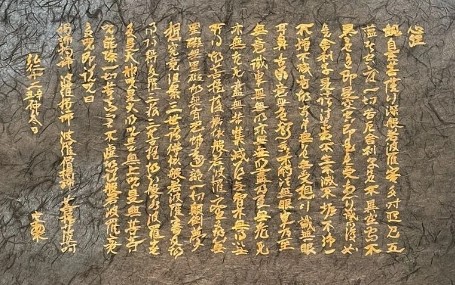 観自在菩薩行深般若波羅蜜多時照見五
蘊皆空度一切苦厄舎利子色不異空空不
異色色即是空空即是色受想行識亦復如
是舎利子是諸法空相不生不滅不垢不浄
不増不減是故空中無色無受想行識無眼
耳鼻舌身意無色声香味触法無眼界乃至
無意識界無無明亦無無明尽乃至無老死
亦無老死尽無苦集滅道無智亦無得以無
所得故菩提薩埵依般若波羅蜜多故心無
罣礙無罣礙故無有恐怖遠離一切顛倒夢
想究竟涅槃三世諸仏依般若波羅蜜多故
得阿耨多羅三藐三菩提故知般若波羅蜜
多是大神呪是大明呪是無上呪是無等等
呪能除一切苦真実不虚故説般若波羅蜜
多呪即説呪曰
羯諦羯諦 波羅羯諦 波羅僧羯諦 菩提薩婆訶